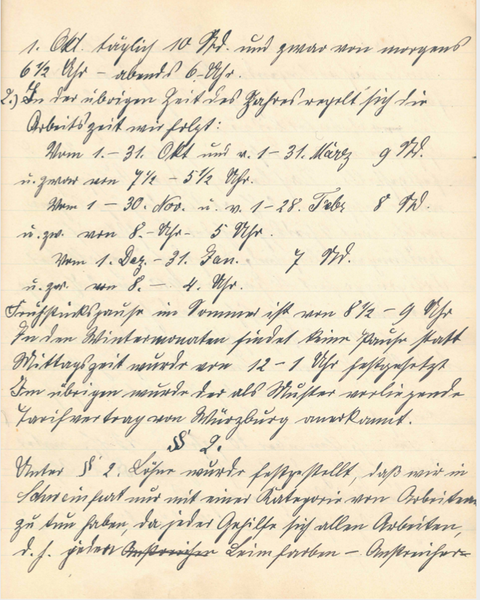 1. Okt. täglich 10 Std. und zwar von morgens
6 1/2 Uhr – abends 6 Uhr.
2.) In der übrigen Zeit des Jahres regelt sich die
Arbeitszeit wie folgt:
Vom 1. – 31. Okt und v. 1 – 31. März 9 Std.
u. zwar von 7 1/2 – 5 1/2 Uhr.
Vom 1 – 30. Nov. u. v. 1 – 28. Febr 8 Std.
u. zw. von 8. – Uhr – 5 Uhr.
Vom 1. Dez. – 31. Jan. 7 Std.
u. zw. von 8. – 4. Uhr.
Frühstückspause im Sommer ist von 8 1/2 – 9 Uhr
In den Wintermonaten findet keine Pause statt
Mittagszeit wurde von 12 – 1 Uhr festgesetzt
Im übrigen wurde der als Muster vorliegende
Tarifvertrag von Würzburg anerkannt.
§ 2.
Unter § 2. Löhne wurde festgestellt, daß wir in
Schweinfurt nur mit einer Kategorie von Arbeitern
zu tun haben, da jeder Gehilfe sich allen Arbeiten,
d. h. jeder Anstreicher Leimfarben – Anstreicher